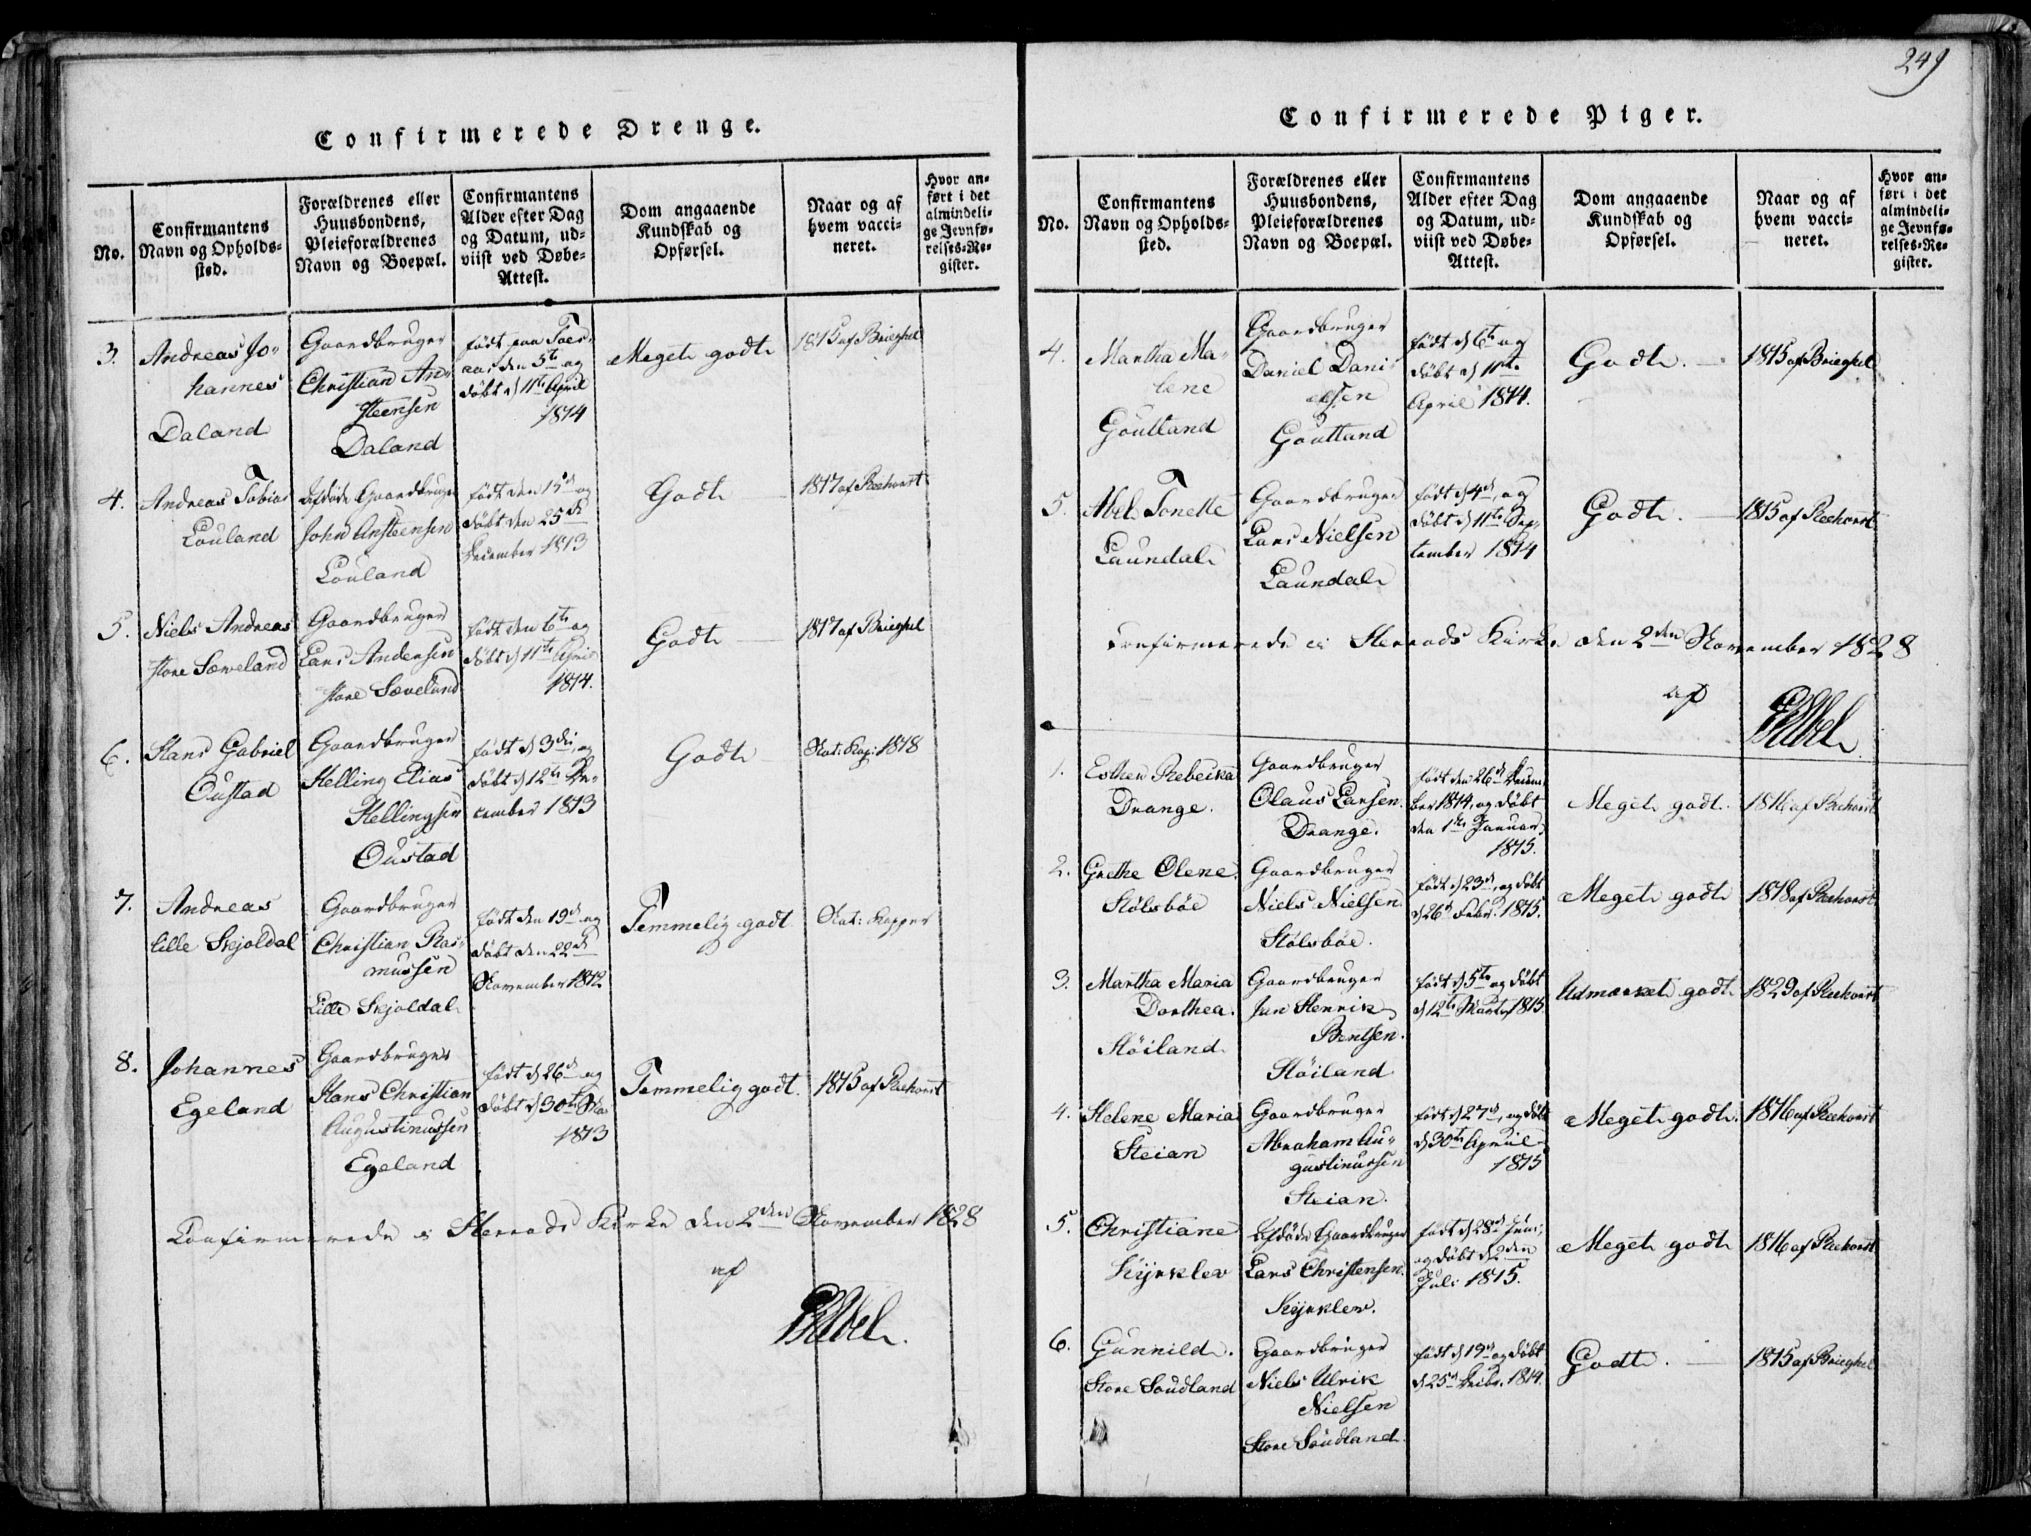 249
Confirmerede Drenge.
No.
Confirmantens
Navn og Opholds-
sted.
Forældrenes eller
Huusbondens,
Pleieforældrenes
Navn og Boepæl.
Confirmantens
Alder efter Dag
og Datum, ud-
viist ved Døbe-
Attest.
Dom angaaende
Kundskab og
Opførsel.
Naar og af
hvem vacci-
neret.
Hvor an-
ført i det
almindeli-
ge Jevnfø-
relses-Re-
gister.
3.
Andreas Jo-
hannes
Daland
Gaardbruger
Christian An-
steensen
Daland
født paa
den 5te og
døbt d 11te April
1814
Meget godt
1815 af Brieghel
4.
Andreas Tobias
Louland
Afdøde Gaardbruger
John Ansteensen
Louland
født den 15d og
døbt den 25de
December 1813
Godt
1817 af Reehorst
5.
Niels Andreas
store Sæveland
Gaardbruger
Lars Andersen
store Sæveland
født den 6te og
døbt d 11te April
1814.
Godt
1817 af Brieghel
6.
Hans Gabriel
Oustad
Gaardbruger
Helling Elias
Hellingsen
Oustad
født d 3die, og
døbt d 12te De-
cember 1813
Godt
Nat: Kop: 1818
7.
Andreas
Lille Skjoldal
Gaardbruger
Christian Ras-
mussen
Lille Skjoldal
født den 19d og
døbt den 22de
November 1812
Temmelig godt
Nat: Kopper
8.
Johannes
Egeland
Gaardbruger
Hans Christian
Augustinussen
Egeland
født d 26d og
døbt d 30te
1813
Temmelig godt.
1815 af Reehorst
Confirmerede i Herrads Kirke den 2den November 1828
af
Confirmerede Piger.
No.
Confirmantens
Navn og Opholds-
sted.
Forældrenes eller
Huusbondens,
Pleieforældrenes
Navn og Boepæl.
Confirmantens
Alder efter Dag
og Datum, ud-
viist ved Døbe-
Attest.
Dom angaaende
Kundskab og
Opførsel.
Naar og af
hvem vacci-
neret.
Hvor an-
ført i det
almindeli-
ge Jevnfø-
relses-Re-
gister.
4.
Martha Ma-
lene
Goutland
Gaardbruger
Daniel Dani-
elsen
Goutland
født d 6te og
døbt d 11te
April 1814.
Godt.
1815 af Brieghel
5.
Abel Tonette
Laundal
Gaardbruger
Lars Nielsen
Laundal
født d 4d, og
døbt d 11te Sep-
tember 1814
Godt.
1815 af Reehorst
Confirmerede i Herrads Kirke den 2den November 1828
af
1.
Esther Rebecka
Drange.
Gaardbruger
Olaus Larsen
Drange.
født den 26d Decem-
ber 1814, og døbt
den 1ste Januar
1815.
Meget godt.
1816 af Reehorst
2.
Grethe Olene
Stølsbøe
Gaardbruger
Niels Nielsen
Stølsbøe.
født d 23d, og døbt
d 26d Febr. 1815.
Meget godt
1818 af Reehorst
3.
Martha Maria
Dorthea.
Høiland.
Gaardbruger
Jan Henrik
Bentsen.
Høiland
født d 5te og døbt
d 12te Marts 1815
Udmærket godt
1829 af Reehorst
4.
Helene Maria
Steian
Gaardbruger
Abraham Au-
gustinussen
Steian.
født d 27d, og døbt
d 30te April
1815
Meget godt.
1816 af Reehorst
5.
Christiane
Kyrklev
Afdøde Gaardbruger
Lars Christensen.
Kyrklev.
født d 28d Juni,
og døbt d 2den
Juli 1815.
Meget godt
1816 af Reehorst
6.
Gunnild.
Store Soudland
Gaardbruger
Niels Ulrik
Nielsen
Store Soudland.
født d 19d og døbt
d 25d Decbr. 1814.
Godt.
1815 af Brieghel